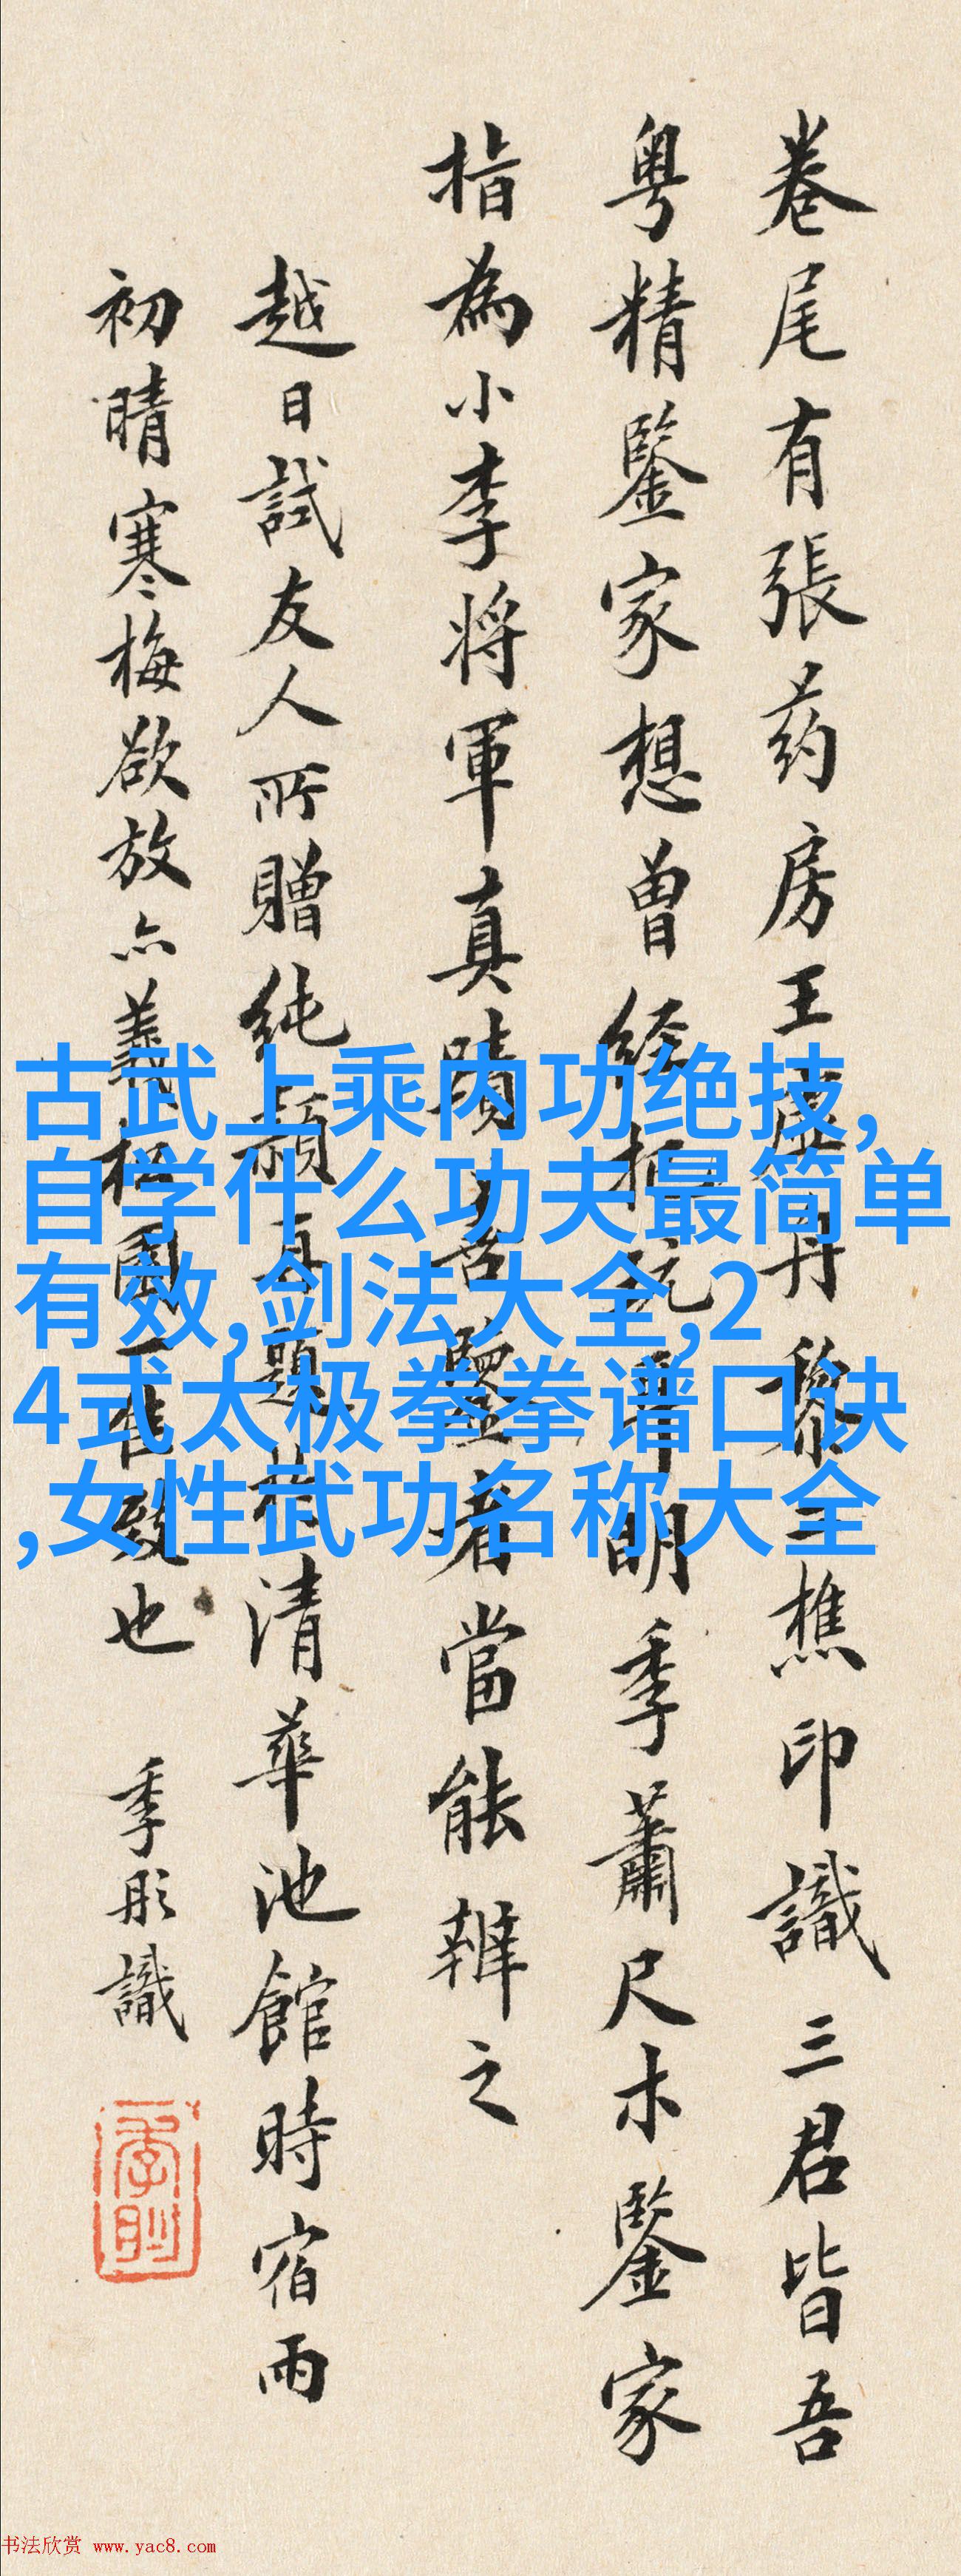 卷尾有張药房王丹黎二樵印識三君皆吾
粤精鑒家想曾經把玩明季蕭尺木鑒家
指為小李将軍真蹟善鑒者當能辨之
越日試友人所贈純穎再題於清華池館時宿雨
初晴寒梅欲放亦義園一佳致也 季彤識
古武上乘内功绝技,
自学什么功夫最简单
有效,剑法大全,2
4式太极拳拳谱口诀
,女性武功名称大全
书法欣赏 www.yac8.com